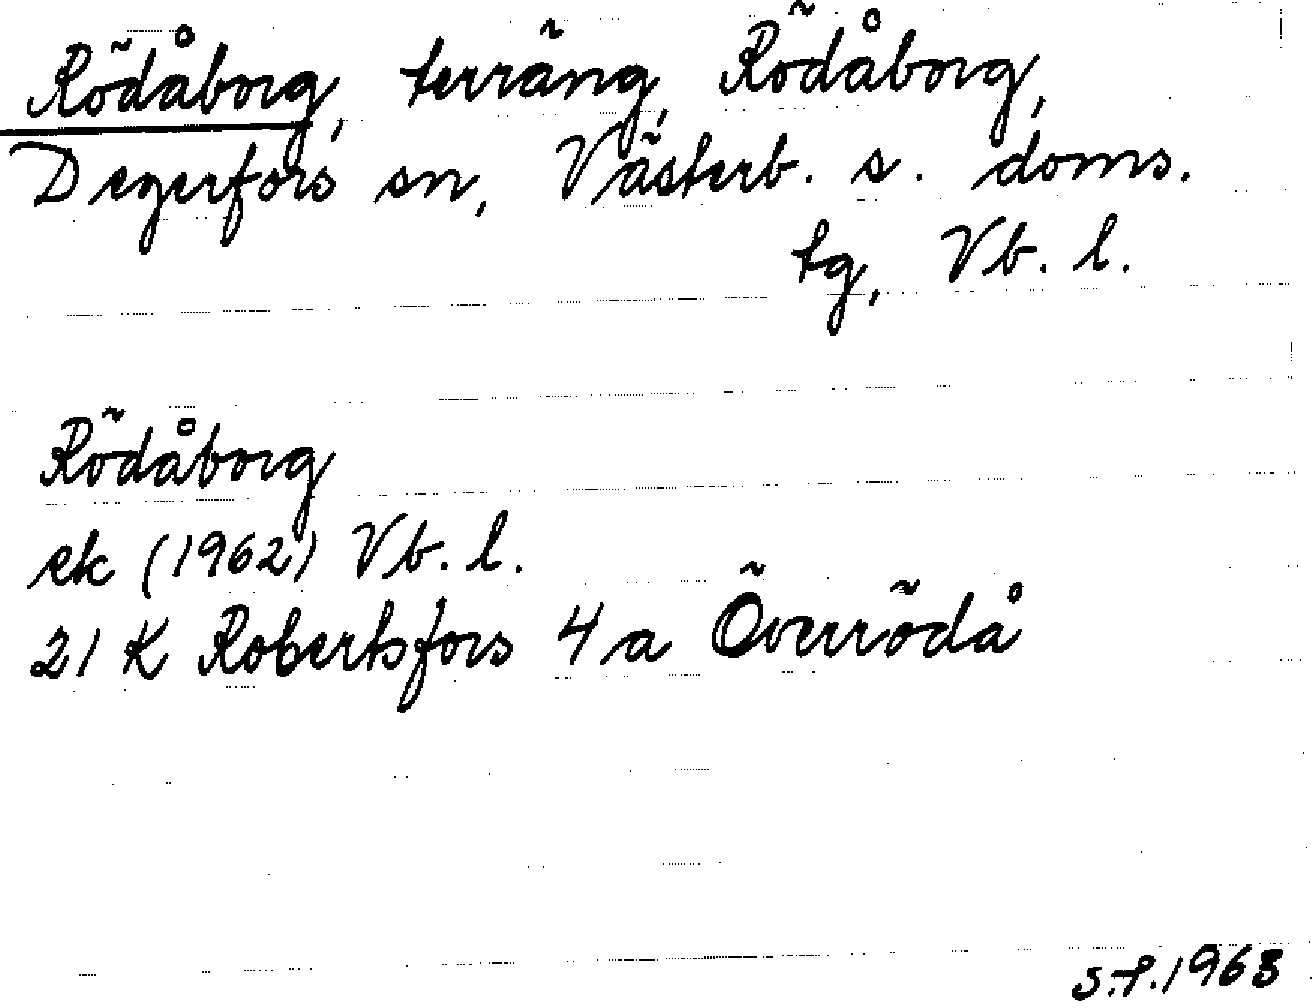 Rödåborg, terräng, Rödåborg,
Degerfors sn, Västerb. s. doms.
tg, Vb. l.
Rödåborg
ek (1962) Vb. l.
21 K Robertsfors 4 a Överrödå
S.f. 1963